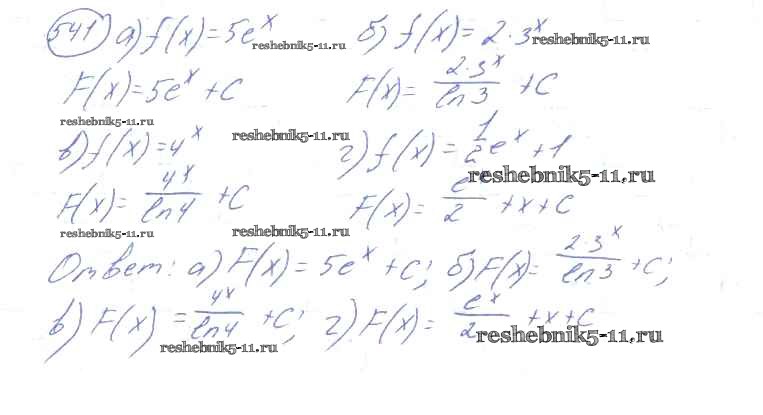 541 а) f(x)=5e^x б) f(x)=2·3^x
reshebnik5-11.ru reshebnik5-11.ru
F(x)=5e^x+C F(x)=2·3^x/ln3+C
reshebnik5-11.ru reshebnik5-11.ru reshebnik5-11.ru
в) f(x)=4^x г) f(x)=1/2e^x+1
reshebnik5-11.ru
F(x)=4^x/ln4+C F(x)=e^x/2+x+C
reshebnik5-11.ru reshebnik5-11.ru
Ответ: а) F(x)=5e^x+C; б) F(x)=2·3^x/ln3+C;
в) F(x)=4^x/ln4+C; г) F(x)=e^x/2+x+C
reshebnik5-11.ru reshebnik5-11.ru